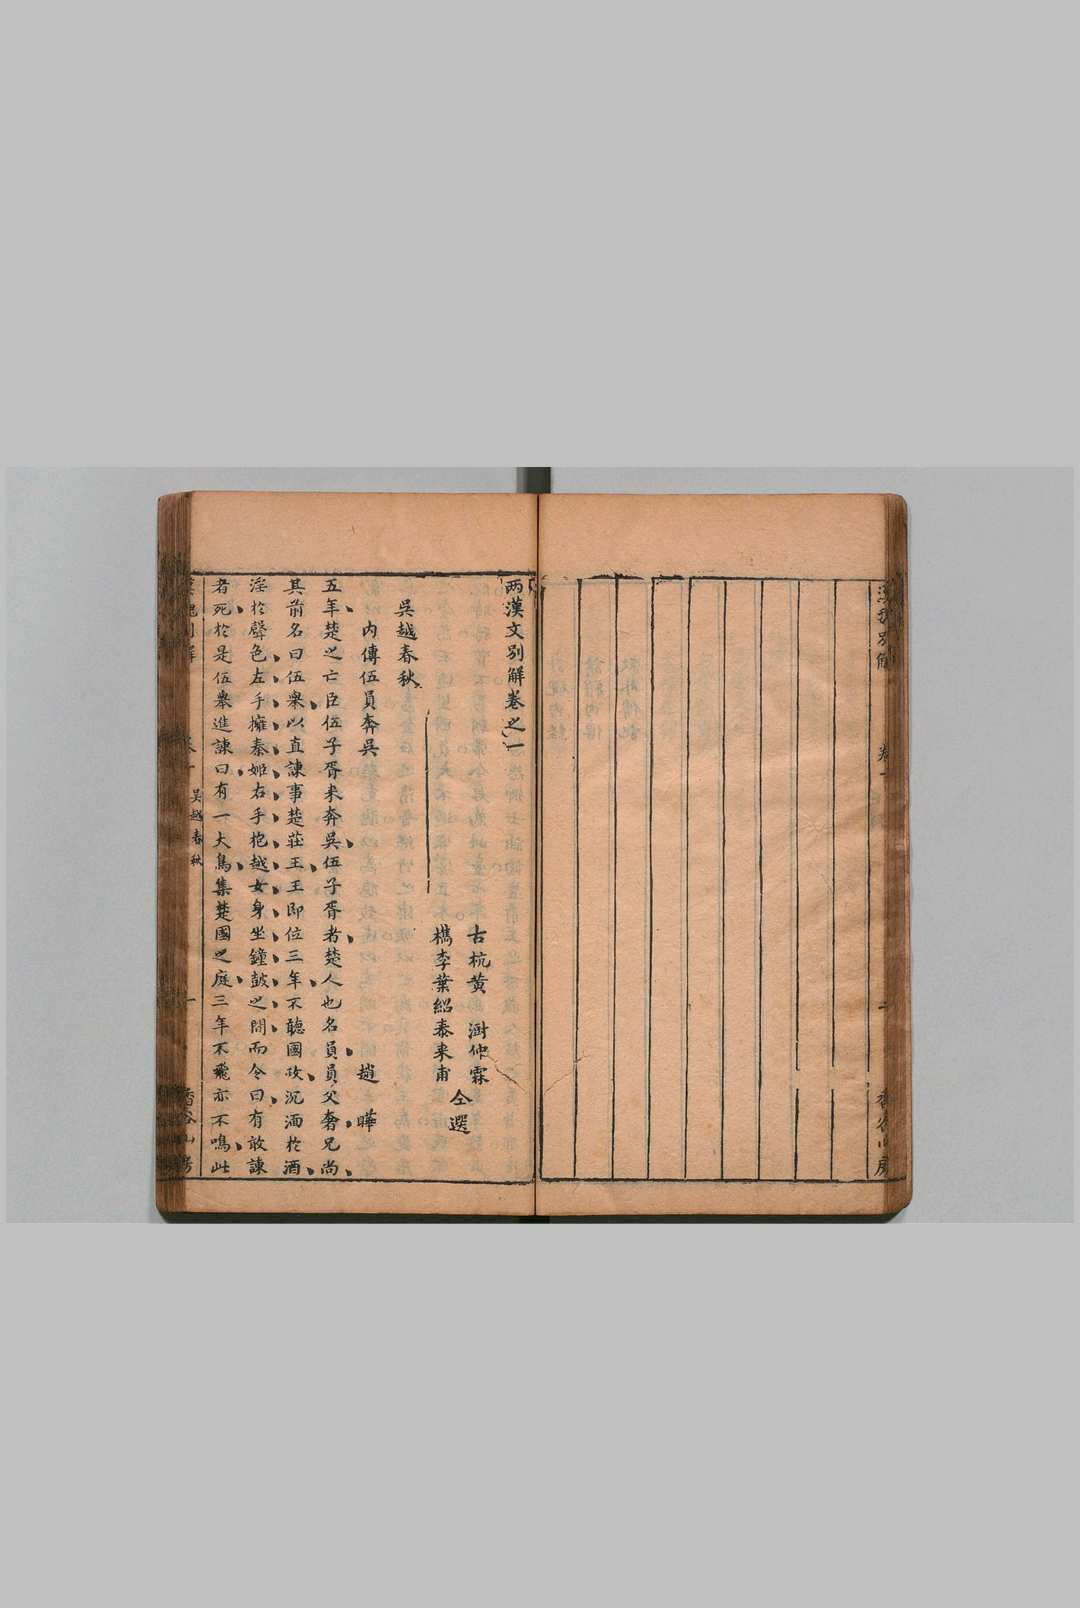 漢魏別解
卷一
香谷山房
两漢文別解卷之一
古杭黄 澍仲霖
檇李葉紹泰来甫
仝選
吳越春秋
内傳伍員奔吳 趙曄
五年楚之亡臣伍子胥来奔吳伍子胥者楚人也名員員父奢兄尚
其前名曰伍舉以直諫事楚莊王王即位三年不聽國政沉湎扵酒
淫扵聲色左手擁秦姬右手抱越女身坐鐘鼓之間而令曰有敢諫
者死扵是伍舉進諫曰有一大鳥集楚國之庭三年不飛亦不鳴此
吳越春秋
一
香谷山房